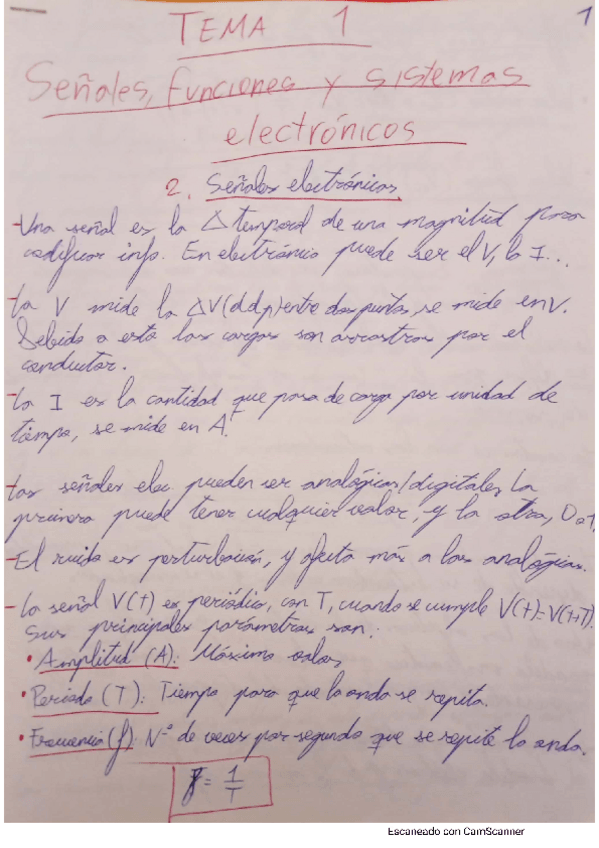 TEMA 1
1
Señales, funciones y sistemas
electrónicos
2. Señales electrónicas
- Una señal es la Δ temporal de una magnitud para
codificar info. En electrónica puede ser el V, la I...
- La V mide la ΔV(ddp) entre dos puntos, se mide en V.
Debido a esto las cargas son arrastras por el
conductor.
- La I es la cantidad que pasa de carga por unidad de
tiempo, se mide en A.
- Las señales elec. pueden ser analógicas/digitales. La
primera puede tener cualquier valor, y la otra, 0 o 1.
- El ruido es perturbación, y afecta más a las analógicas.
- La señal V(t) es periódica, con T, cuando se cumple V(t)=V(t+T).
Sus principales parámetros son:
• Amplitud (A): Máximo valor
• Periodo (T): Tiempo para que la onda se repita.
• Frecuencia (f): Nº de veces por segundo que se repite la onda.
f = 1/T
Escaneado con CamScanner